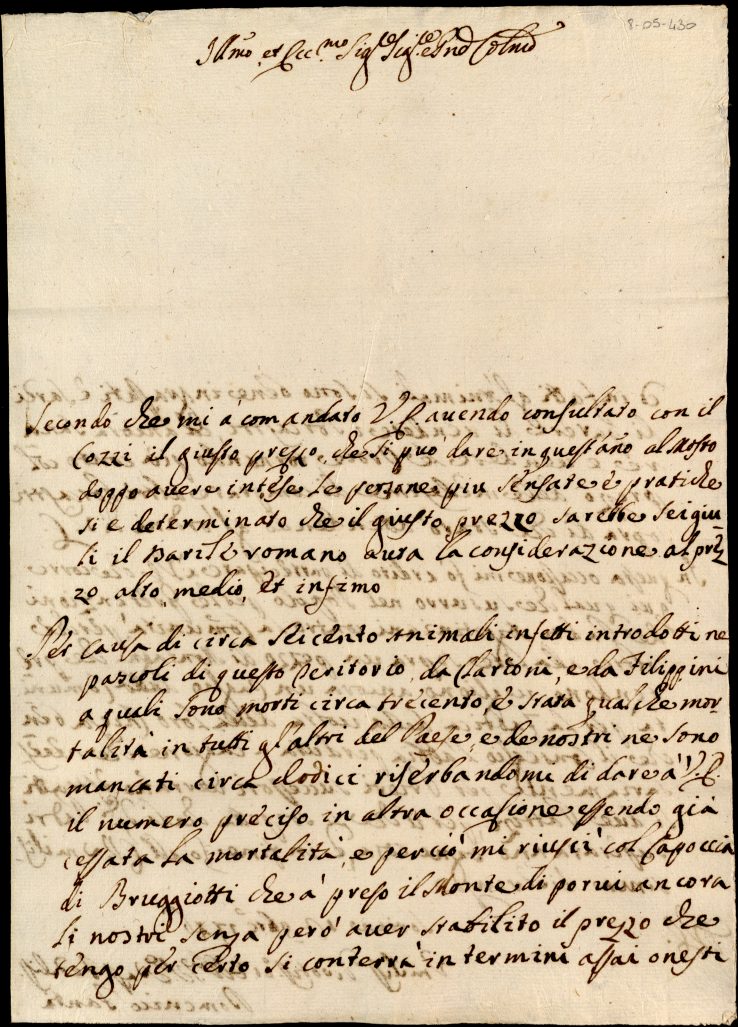 8-05-430
Ill.mo et Ecc.mo Sig.re Sig.re e Pne Colmo
Secondo che mi à comandato V E avendo consultato con il
Cozzi il giusto prezzo, che si può dare in quest'año al Mosto
doppo avere intese le persone più sensate è pratiche
si è determinato che il giusto prezzo sarebbe sei giu
li il Barile romano avra la considerazione al prez
zo alto, medio, et infimo
Per causa di circa seicento Animali infetti introdotti ne
pascoli di questo Teritorio, da Clarioni, e da Filippini
a quali sono morti circa trecento, è stata qualche mor
talità in tutti gl'altri del Paese, e de nostri ne sono
mancati circa dodici riserbandomi di dare à V.E.
il numero preciso in altra occasione essendo già
cessata la mortalità, e perciò mi riuscì col Capoccia
di Bruggiotti che à preso il Monte di porvi ancora
li nostri senza però aver stabilito il prezzo che
tengo per certo si conterrà in termini assai onesti